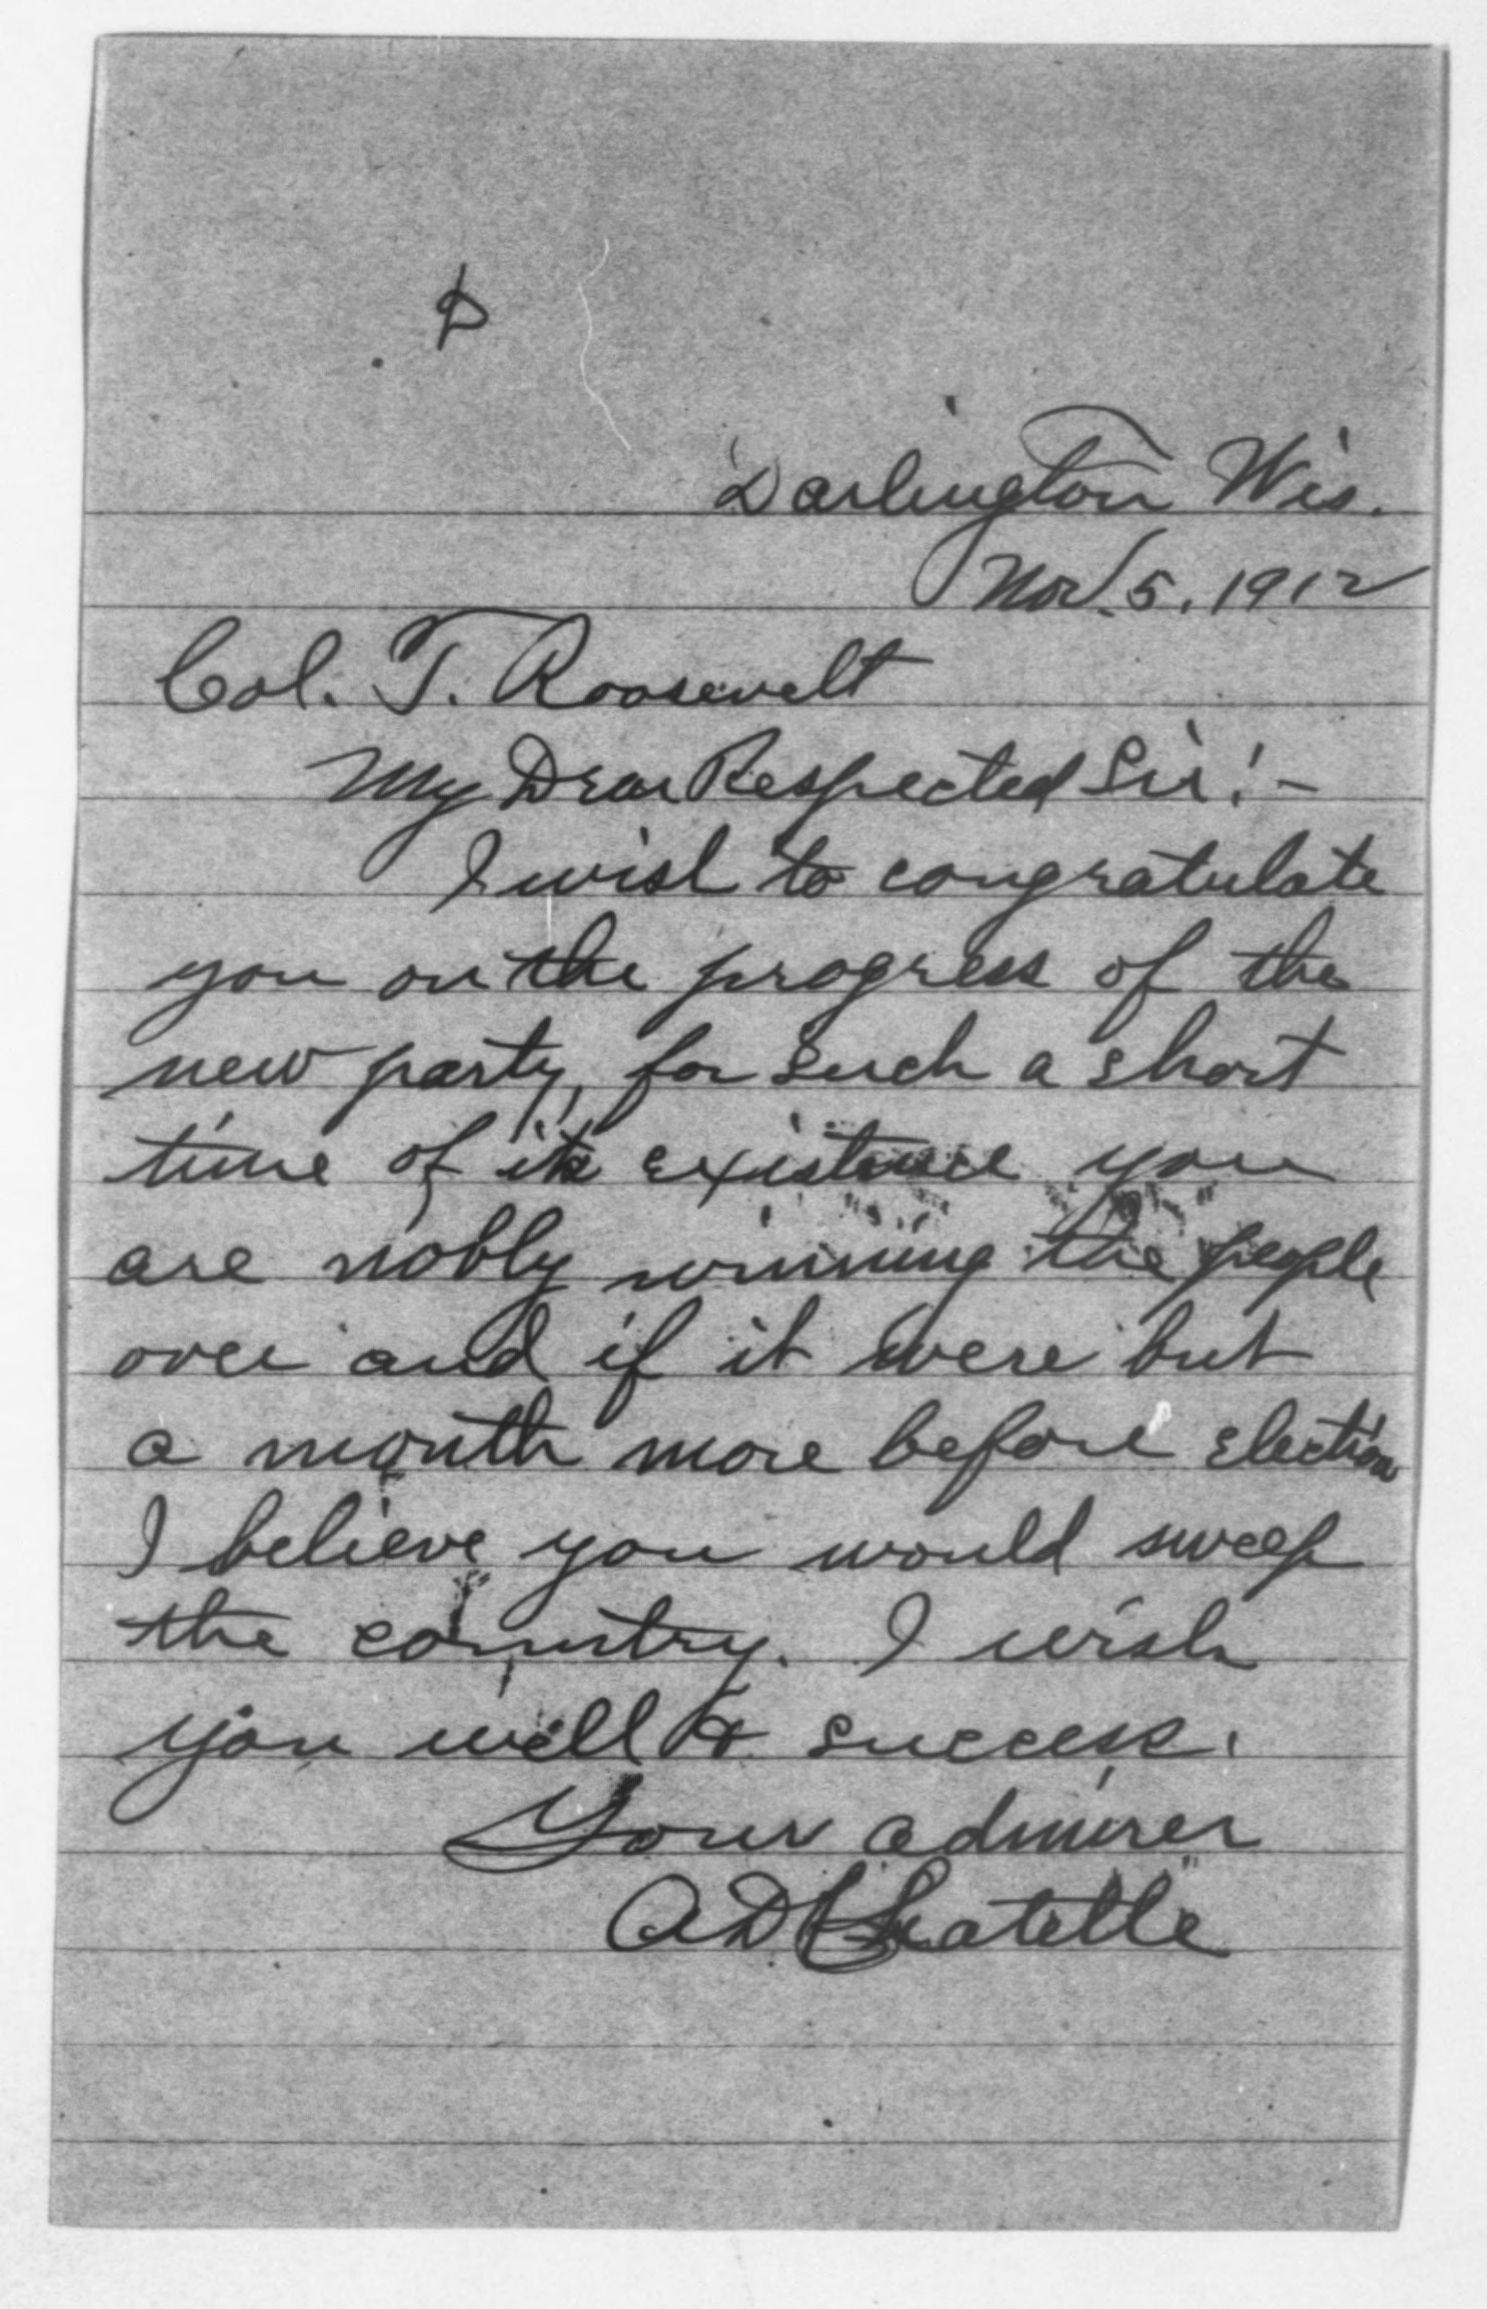 Darlington Wis.
Nov. 5, 1912
Col. T. Roosevelt
My Dear Respected Sir! -
I wish to congratulate
you on the progress of the
new party, for such a short
time of its existence you
are nobly winning the people
over and if it were but
a month more before election
I believe you would sweep
the country. I wish
you well & success.
Your admirer
A D